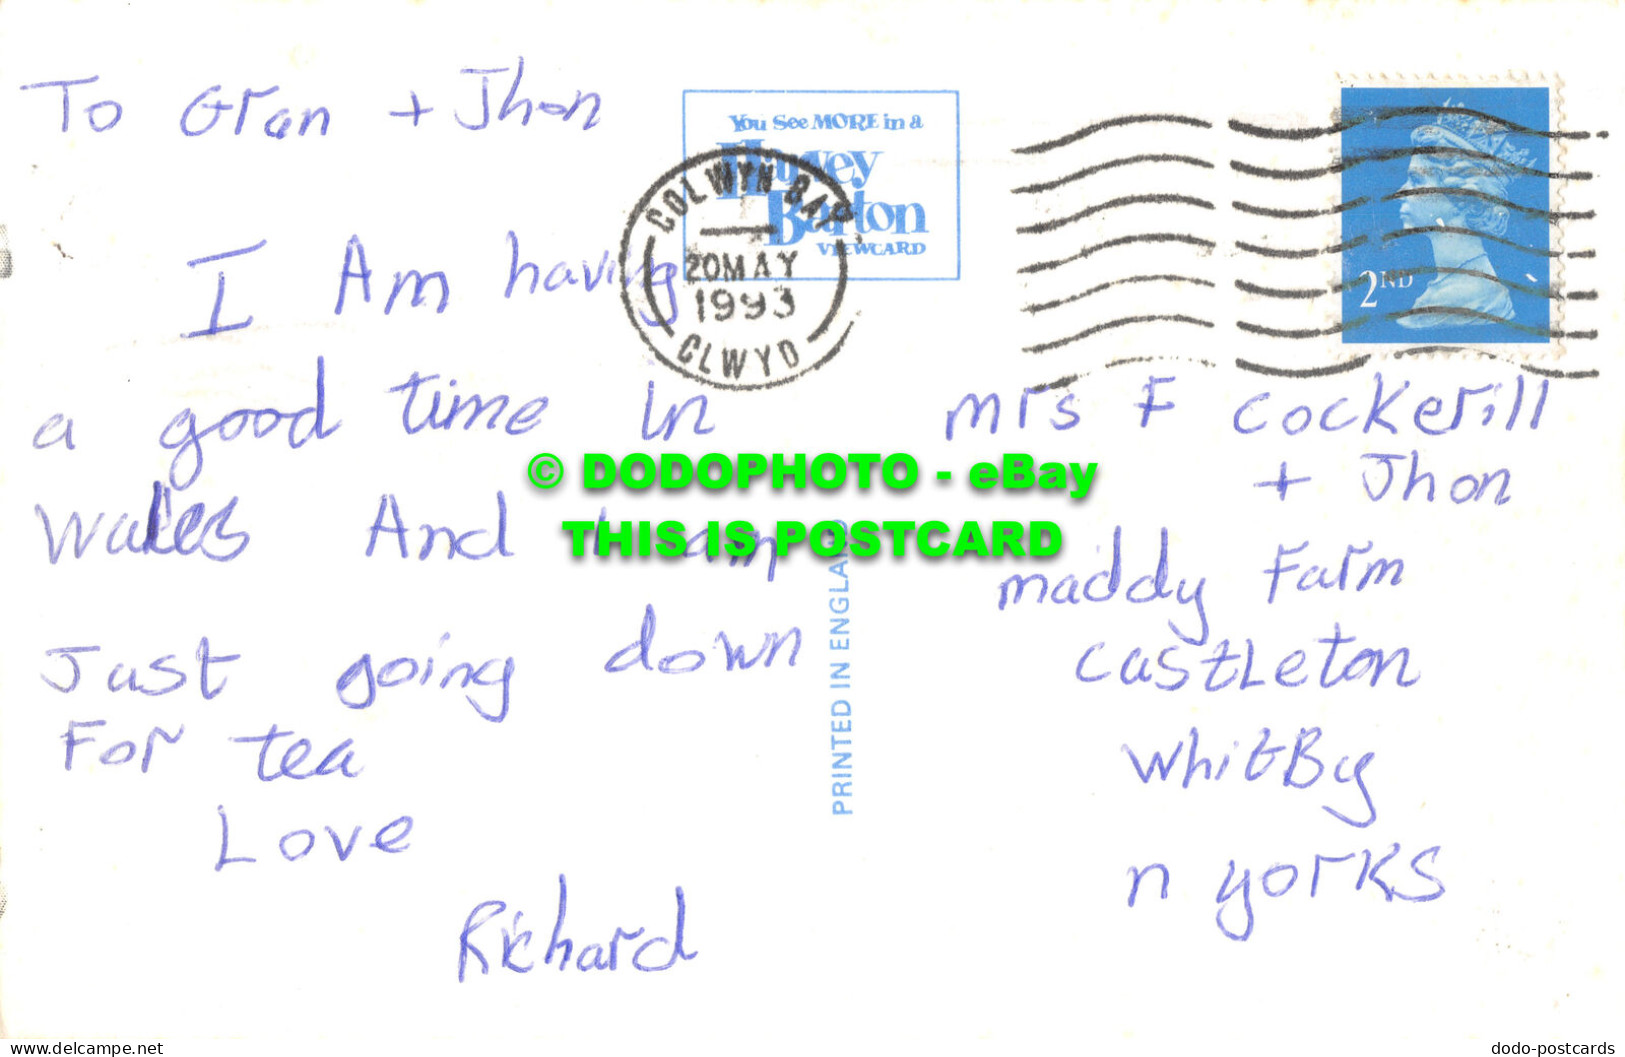 To Gran + Jhon
I Am having
a good time in
Wales And I am
Just going down
For tea
Love
Richard
You See MORE in a
Harvey
Barton
VIEWCARD
COLWYN BAY
20 MAY
1993
CLWYD
2ND
mrs F cockerill
+ Jhon
maddy Farm
castLeton
whitBy
n yorks
PRINTED IN ENGLAND
© DODOPHOTO - eBay
THIS IS POSTCARD
delcampe.net
dodo-postcards